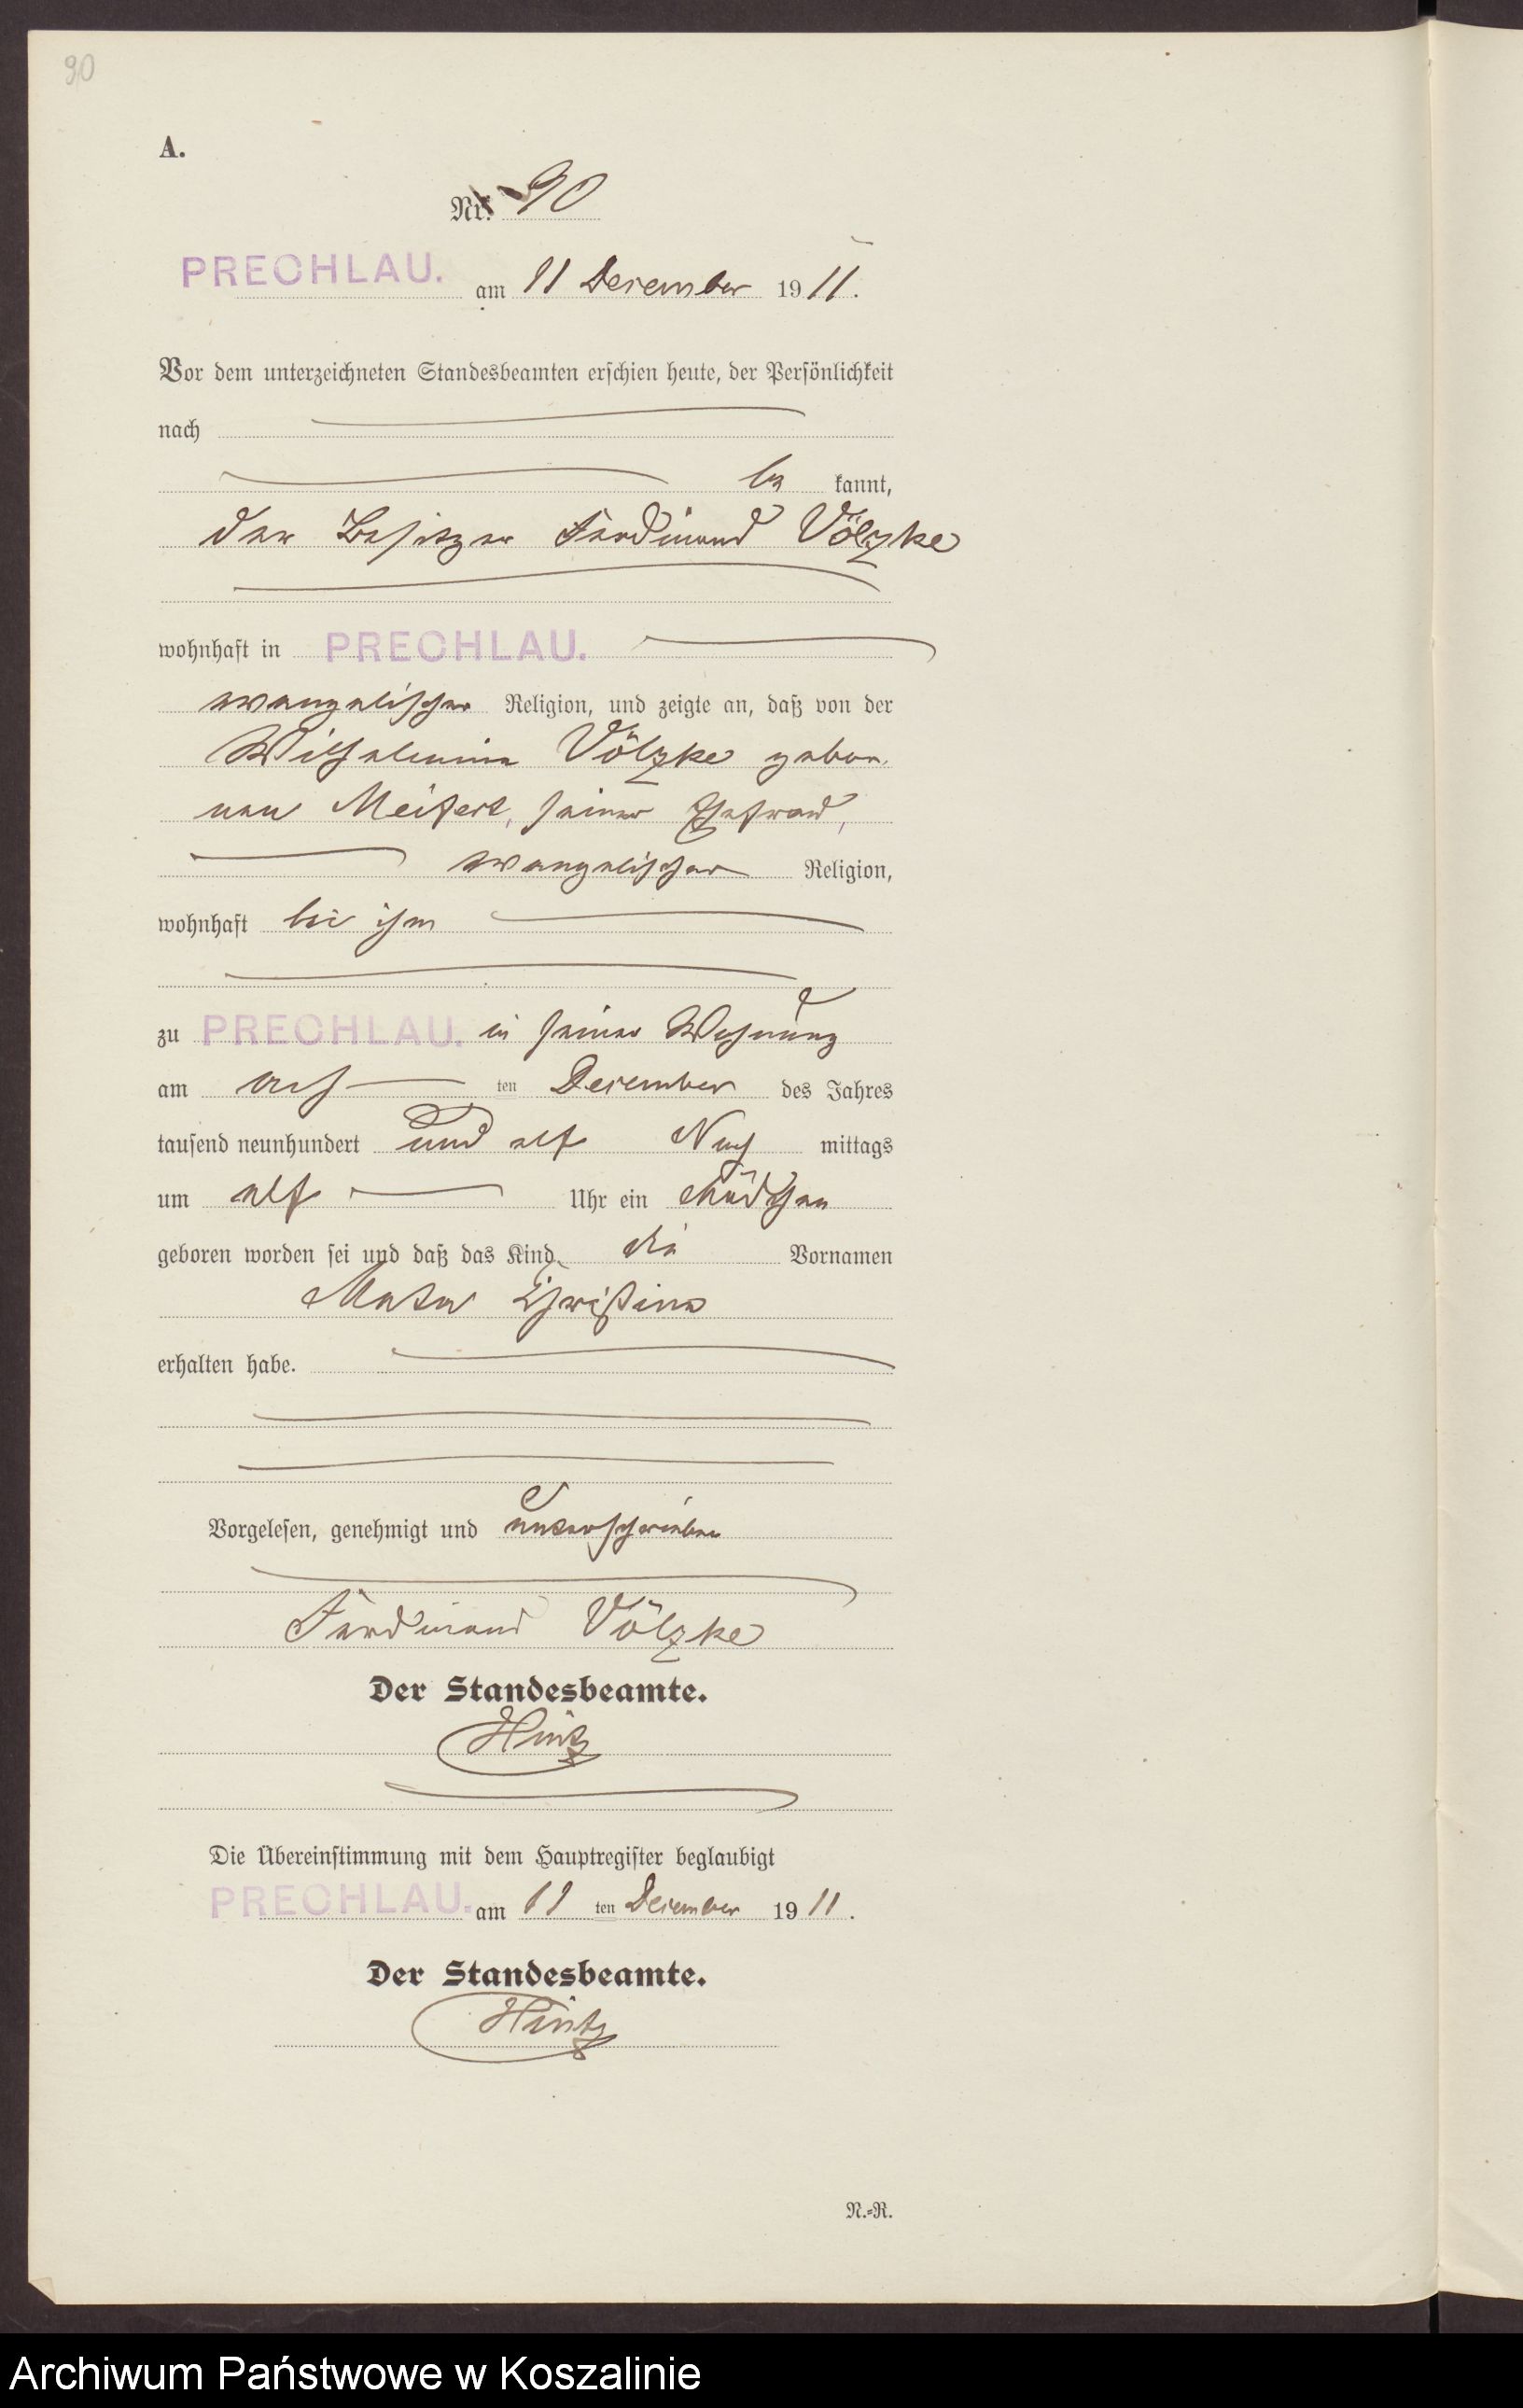 90
A.
Nr. 90
PRECHLAU. am 11 Dezember 1911.
Vor dem unterzeichneten Standesbeamten erschien heute, der Persönlichkeit
nach
be kannt,
der Besitzer Ferdinand Völzke
wohnhaft in PRECHLAU.
evangelischer Religion, und zeigte an, daß von der
Wilhelmine Völzke gebor
nen Meifert, seiner Ehefrau,
evangelischer Religion,
wohnhaft bei ihm
zu PRECHLAU. in seiner Wohnung
am ach ten Dezember des Jahres
tausend neunhundert und elf Nach mittags
um elf Uhr ein Mädchen
geboren worden sei und daß das Kind die Vornamen
Meta Christine
erhalten habe.
Vorgelesen, genehmigt und unterschrieben
Ferdinand Völzke
Der Standesbeamte.
Hintz
Die Übereinstimmung mit dem Hauptregister beglaubigt
PRECHLAU. am 11 ten Dezember 1911.
Der Standesbeamte.
Hintz
N.=R.
Archiwum Państwowe w Koszalinie